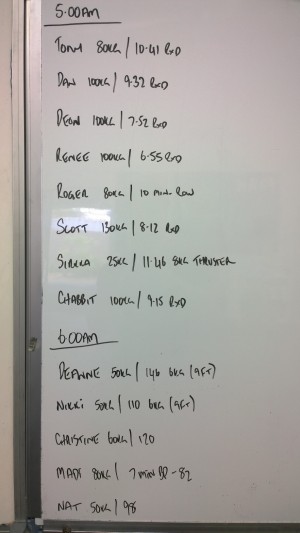 5:00AM
TONY 80KG / 10.41 RXD
DAN 100KG / 9.32 RXD
DEON 100KG / 7.52 RXD
RENEE 100KG / 6.55 RXD
ROGER 80KG / 10 MIN ROW
SCOTT 130KG / 8.12 RXD
SIRKKA 25KG / 11.46 8KG THRUSTER
CHABBIT 100KG / 9.15 RXD
6:00AM
DEANNE 50KG / 146 6KG (9FT)
NIKKI 50KG / 110 6KG (9FT)
CHRISTINE 60KG / 120
MADI 80KG / 7 MIN - 82
NAT 50KG / 98